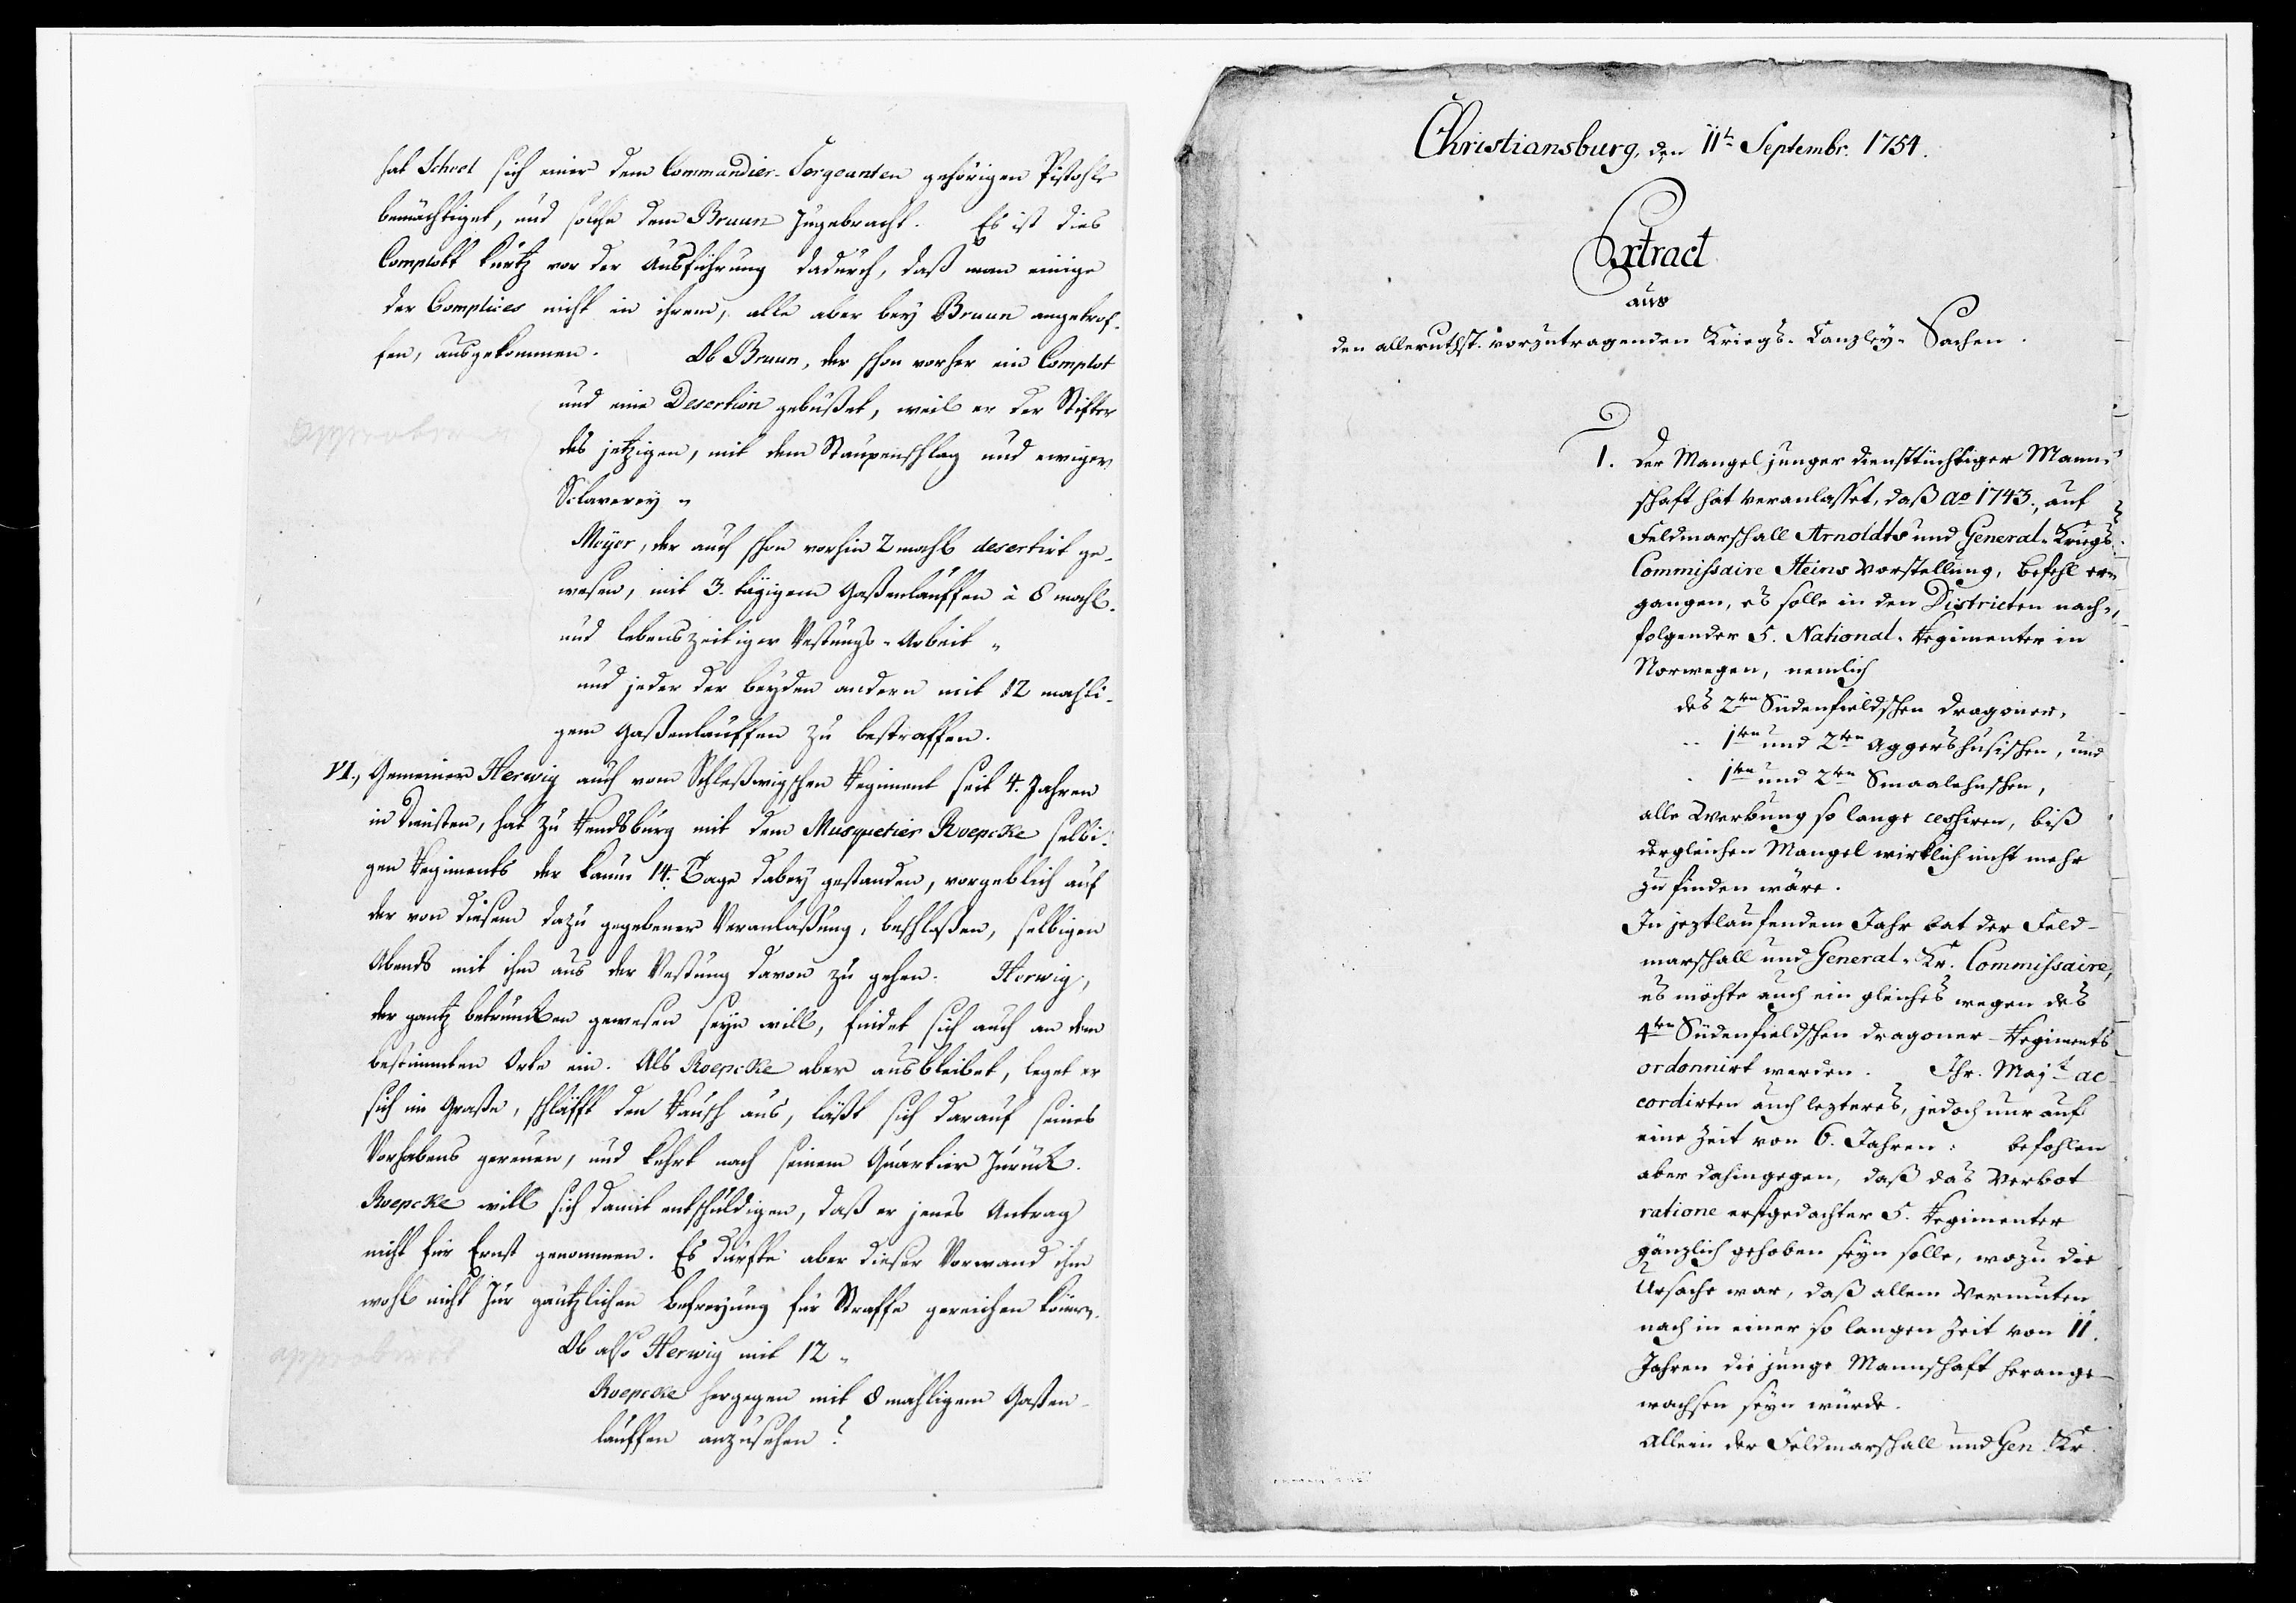 hat Schrel sich einer dem Commandier-Sergeanten gehörigen Pistohle
bemächtiget, und solche dem Bruun zugebracht. Es ist dies
Complott kurtz vor der Ausführung dadurch, daß man einige
der Complices nicht in ihrem, alle aber bey Bruun angetrof-
fen, ausgekommen. Ob Bruun, der schon vorher ein Complot
und eine Desertion gebüßet, weil er der Stifter
des jetzigen, mit dem Staupenschlag und ewiger
Sclaverey "
approbirt
Meyer, der auch schon vorhin 2 mahl desertirt ge-
wesen, mit 3. tägigem Gaßenlauffen à 8 mahl.
und lebenszeitiger Vestungs-Arbeit "
und jeder der beyden andern mit 12 mahli-
gem Gaßenlauffen zu bestraffen.
VI., Gemeiner Herwig auch vom Schleßwigschen Regiment seit 4. Jahren
in Diensten, hat zu Rendsburg mit dem Musquetier Roepcke selbi-
gen Regiments der kaum 14. Tage dabey gestanden, vorgeblich auf
der von diesem dazu gegebener Veranlaßung, beschloßen, selbigen
Abends mit ihm aus der Vestung davon zu gehen. Herwig,
der gantz betruncken gewesen seyn will, findet sich auch an dem
bestimmten Orte ein. Als Roepcke aber ausbleibet, leget er
sich im Graße, schläfft den Rausch aus, läßt sich darauf seines
Vorhabens gereuen, und kehrt nach seinem Quartier zurück.
Roepcke will sich damit entschuldigen, daß er jenes Antrag
nicht für Ernst genommen. Es dürfte aber dieser Vorwand ihm
wohl nicht zur gäntzlichen Befreyung für Straffe gereichen können.
Ob also Herwig mit 12 "
approbirt
Roepcke hergegen mit 8 mahligem Gaßen-
lauffen anzusehen?
Christiansburg, den 11t Septembr. 1754.
Extract
aus
den alleruthst. vorzutragenden Kriegs-Canzley-Sachen.
1. Der Mangel junger diensttüchtiger Mann-
schaft hat veranlaßet, daß ao 1743., auf
Feldmarschall Arnoldts und General-Kriegs-
Commissaire Heins Vorstellung, Befehl er-
gangen, es solle in den Districten nach-
folgender 5. National-Regimenter in
Norwegen, nemlich
des 2ten Südenfieldschen Dragoner,
" 1ten und 2ten Aggershusischen, und
" 1ten und 2ten Smaalehnschen,
alle Werbung so lange cessiren, biß
dergleichen Mangel wirklich nicht mehr
zu finden wäre.
In jeztlaufendem Jahr bat der Feld-
marschall und General-Kr. Commissaire,
es möchte auch ein gleiches wegen des
4ten Südenfieldschen Dragoner-Regiments
ordonnirt werden. Ihr. Majt ac-
cordirten auch lezteres, jedoch nur auf
eine Zeit von 6. Jahren: befohlen
aber dahingegen, daß das Verbot
ratione erstgedachter 5. Regimenter
gänzlich gehoben seyn solle, wozu die
Ursache war, daß allem Vermuten
nach in einer so langen Zeit von 11.
Jahren die junge Mannschaft herange-
wachsen seyn würde.
Allein der Feldmarschall und Gen. Kr.